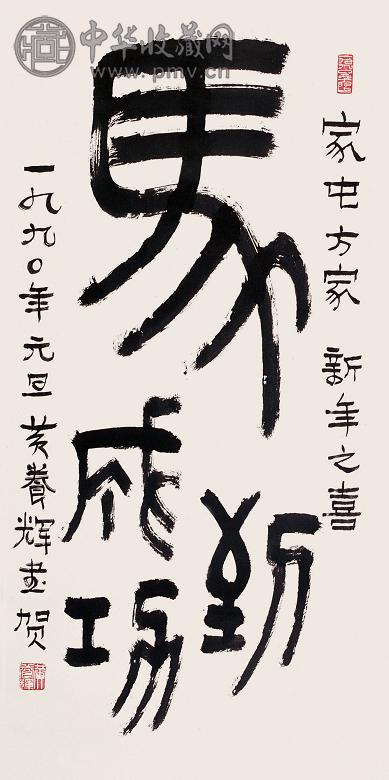 中华收藏网
www.pmv.cn
家屯方家 新年之喜
馬到
成功
一九九〇年元旦黄養辉書贺